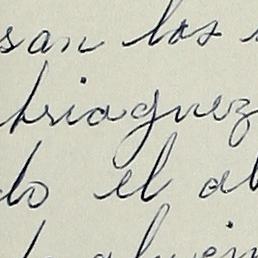 san los
briaguez
do el al